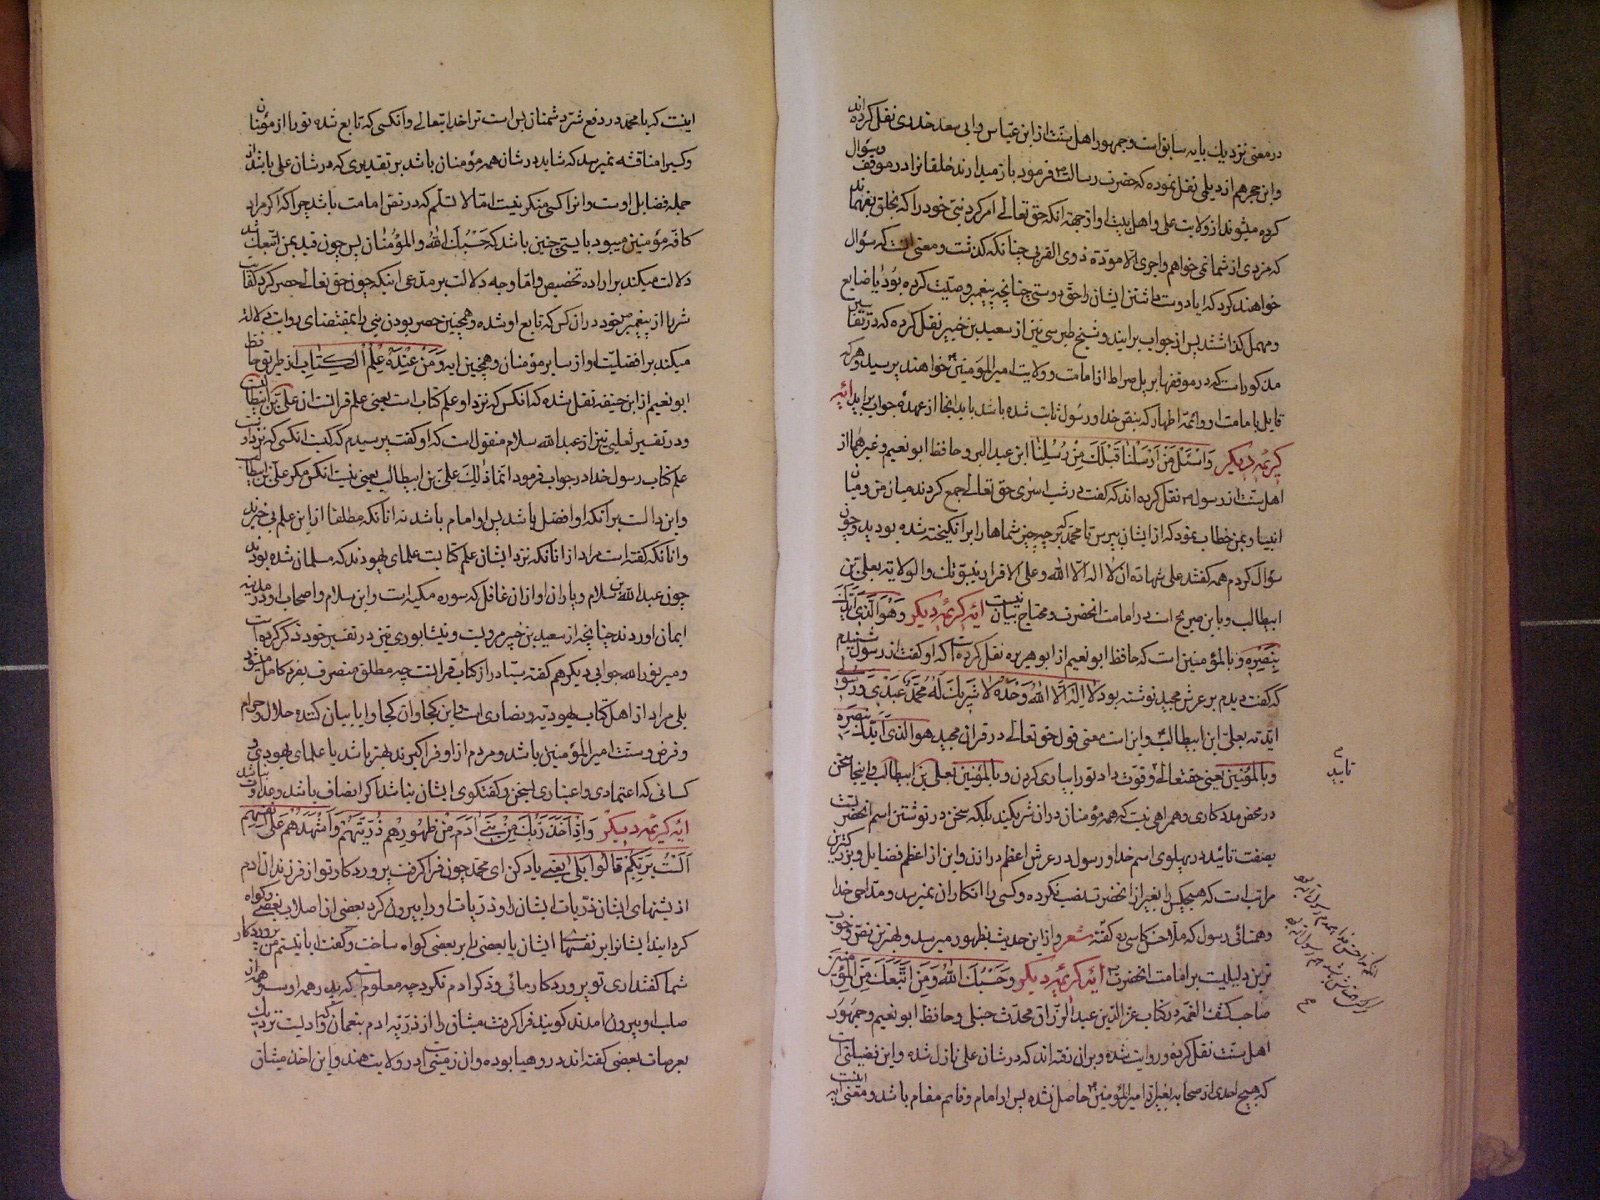 در معنی نزدیک بایه سابق است و جمهور اهل سنت از ابن عباس و ابی سعد خدری نقل کرده اند
و ابن حجر هم از دیلمی نقل نموده که حضرت رسالت فرمود باز میدارند خلقانرا در موقف و سؤال
کرده میشوند از ولایت علی و اهل بیت او از جهة انکه حق تعالی امر کرد نبی خود را که بخلق بفهماند
که مزدی از شما نمی خواهم و اجری الا مودّة ذوی القربی چنانکه گذشت و معنی انست که سؤال
خواهند کرد که ایا دوست داشتن ایشان را حق دوستی چنانچه پیغمبر وصیّت کرده بود یا ضایع
و مهمل گذاشتند پس از جواب برایند و شیخ طبرسی نیز از سعید بن جبیر نقل کرده که در تفاسیر
مذکور است که در موقفها بر پل صراط از امامت و ولایت امیر المؤمنین خواهند پرسید و هر که
قایل بامامت او و ائمّه اطهار که بنص خدا و رسول ثابت شده باشد باید انجا از عهده جواب براید ائیه
کریمه دیکر وَاسْئَلْ مَنْ اَرْسَلْنٰا قَبْلَكَ مِنْ رُسُلِنٰا ابن عبد البر و حافظ ابو نعیم و غیر هما از
اهل سنت از رسول نقل کرده اند که گفت در شب اسری حق تعالی جمع کردند میان من و میان
انبیا و بمن خطاب نمود که از ایشان بپرس یا محمد که بر چه چیز شماها را بر انگیخته شده بودید و چون
سؤال کردم همه گفتند علی شهادة ان لا اله الا الله و علی الاقرار بنبوّتك والولایة لعلی بن
ابیطالب و این صریح است در امامت انحضرت و محتاج بیان نیست ائیه کریمه دیکر وَهُوَ الَّذِی اَیَّدَكَ
بِنَصْرِهِ وَ بِالْمُؤْمِنِینَ است که حافظ ابو نعیم از ابو هریره نقل کرده که او گفت از رسول شنیدم
که گفت دیدم بر عرش مجید نوشته بود لا اِلٰهَ اِلَّا اللهُ وَحْدَهُ لٰا شَرِیكَ لَهُ مُحَمَّدٌ عَبْدِی وَ رَسُولِی
ایّدته بعلیّ ابن ابیطالبٍ و این است معنی قول حق تعالی در قران مجید هو الَّذِی اَیَّدَكَ بِنَصْرِهِ
وَ بِالْمُؤْمِنِینَ یعنی حقتعالی وقوت داد تو را بیاری کردن و بالمؤمنین بعلی بن ابیطالب و اینجا سخن
در محض مددکاری و همراهی نیست که همه مؤمنان در ان شریکند بلکه سخن در نوشتن اسم انحضرتست
بصفت تائید در پهلوی اسم خدا و رسول در عرش اعظم در ازل و این از اعظم فضایل و بزرکترین
مراتب است که هیچکس را بغیر از انحضرت نصب نکرده و کسی را انکار ان نمیرسد و مداحی خدا
و همتائی رسول که ملا حسن کاسی ره گفته شعر و از این حدیث بظهور میرسد و بهترین نص و خوب
ترین دلیلیست بر امامت انحضرت ائیه کریمه دیکر وَ حَسْبُكَ اللهُ وَ مَنِ اتَّبَعَكَ مِنَ الْمُؤْمِنِینَ
صاحب کشف الغمّه در کتاب عزّ الدّین عبد الرّزاق محدّث حنبلی و حافظ ابو نعیم و جمهور
اهل سنت نقل کرده و روایت شده و بران رفته اند که در شان علی نازل شده و این فضیلتی است
که هیچ احدی از صحابه بغیر از امیر المؤمنین حاصل نشده پس او امام و قایم مقام باشد و معنی ایه
تایید
اینست که یا محمد در دفع شرّ دشمنان بس است ترا خدایتعالی و انکسی که تابع شده تو را از مؤمنان
و کسیرا مناقشه نمیرسد که شاید در شان همه مؤمنان باشد بر تقدیری که در شان علی باشد از
جمله فضایل اوست و انرا کسی منکر نیست امّا لا نسلّم که در نصّ امامت باشد چرا که اکر مراد
کافه مؤمنین میبود بایستی چنین باشد که حَسْبُكَ اللهُ وَ المؤمنان پس چون قید بمن اتّبعك شد
دلالت میکند بر اراده تخصیص و امّا وجه دلالت بر مدّعی اینکه چون حق تعالی حصر کرد کفایت
شرّ را از پیغمبر خود در ان کس که تابع او شده و همچنین حصر بودن نبی را بمقتضای روایت دلالة
میکند بر افضلیّت او از سایر مؤمنان و همچنین ایه وَ مَنْ عِنْدَهُ عِلْمُ الْكِتٰابِ از طریق حافظ
ابو نعیم از ابن حنفیّه نقل شده که انکس که نزد او علم کتاب است یعنی علم قرانست ان علی بن ابیطالب
و در تفسیر ثعلبی نیز از عبد الله سلام منقول است که او گفت پرسیدم که کیست انکسی که نزد اوست
علم کتاب رسول خدا در جواب فرمود انّما ذٰلِكَ علیّ بن ابیطالب یعنی نیست انکس مکر علی بن ابیطالب
و این دالست بر انکه او افضل باشد پس او امام باشد نه انانکه مطلقا از این علم بی خبرند
و انانکه گفته است مراد از انانکه نزد ایشان علم کتابست علمای یهودند که مسلمان شده بودند
چون عبد الله بن سلام و یاران او از ان غافل که سوره مکیه است و ابن سلام و اصحاب او در مدینه
ایمان اوردند چنانچه از سعید بن جبیر مرویست و نیشابوری نیز در تفسیر خود ذکر کرده است
و میر نور الله جوابی دیکر هم گفته ببتادر از کتاب قرانست چه مطلق منصرف بفرد کامل میشود
بلی مراد از اهل کتاب یهودیه و نصاری است این کجا و ان کجا و ایا بیان کننده حلال و حرام
و فرض و سنّت امیر المؤمنین باشد و مردم از او فرا گیرند بهتر باشد یا علمای یهودی و
کسانی که اعتمادی و اعتباری بسخن و گفتکوی ایشان نباشد اکر انصاف باشد و عداوت نباشد
ائیه کریمه دیکر وَ اِذْ اَخَذَ رَبُّكَ مِنْ بَنِی اٰدَمَ مِنْ ظُهُورِهِمْ ذُرِّیَّتَهُمْ وَ اَشْهَدَهُمْ عَلٰی اَنْفُسِهِمْ
اَلَسْتُ بِرَبِّکُمْ قٰالُوا بَلٰی یعنی یاد کن ای محمد چون فرا گرفت پروردکار تو از فرزندان ادم
از پشتهای ایشان ذرّیات ایشان را و ذرّیات او را بیرون کرد بعضی از اصلاب بعضی و گواه
کردانید ایشانرا بر نفسهای ایشان یا بعضی را بر بعضی گواه ساخت و گفت ایا نیستم من پروردکار
شما گفتند اری تو پروردکار مائی و ذکر ادم نکرد چه معلوم است که پدر همه اوست و همه از
صلب او بیرون امدند گویند فرا گرفت میثاق را از ذرّیه ادم بنعمان که وادیست نزدیك
بعرصات بعضی گفته اند در وهیا بوده و ان زمینی است در ولایت هند و این اخذ میثاق